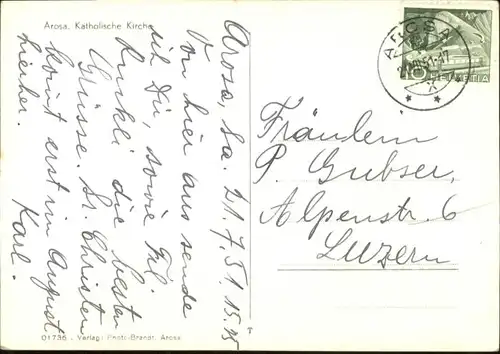 Arosa. Katholische Kirche
Arosa, Sa. 21.7.51. 15.15
Von hier aus sende
ich Dir, sowie Frl
die besten
Grüsse. Sr. Christen
kommt erst im August
hierher.
Karl.
01736 - Verlag: Photo-Brandt, Arosa
AROSA
HELVETIA
Fräulein
P. Gubser,
Alpenstr. 6
Luzern